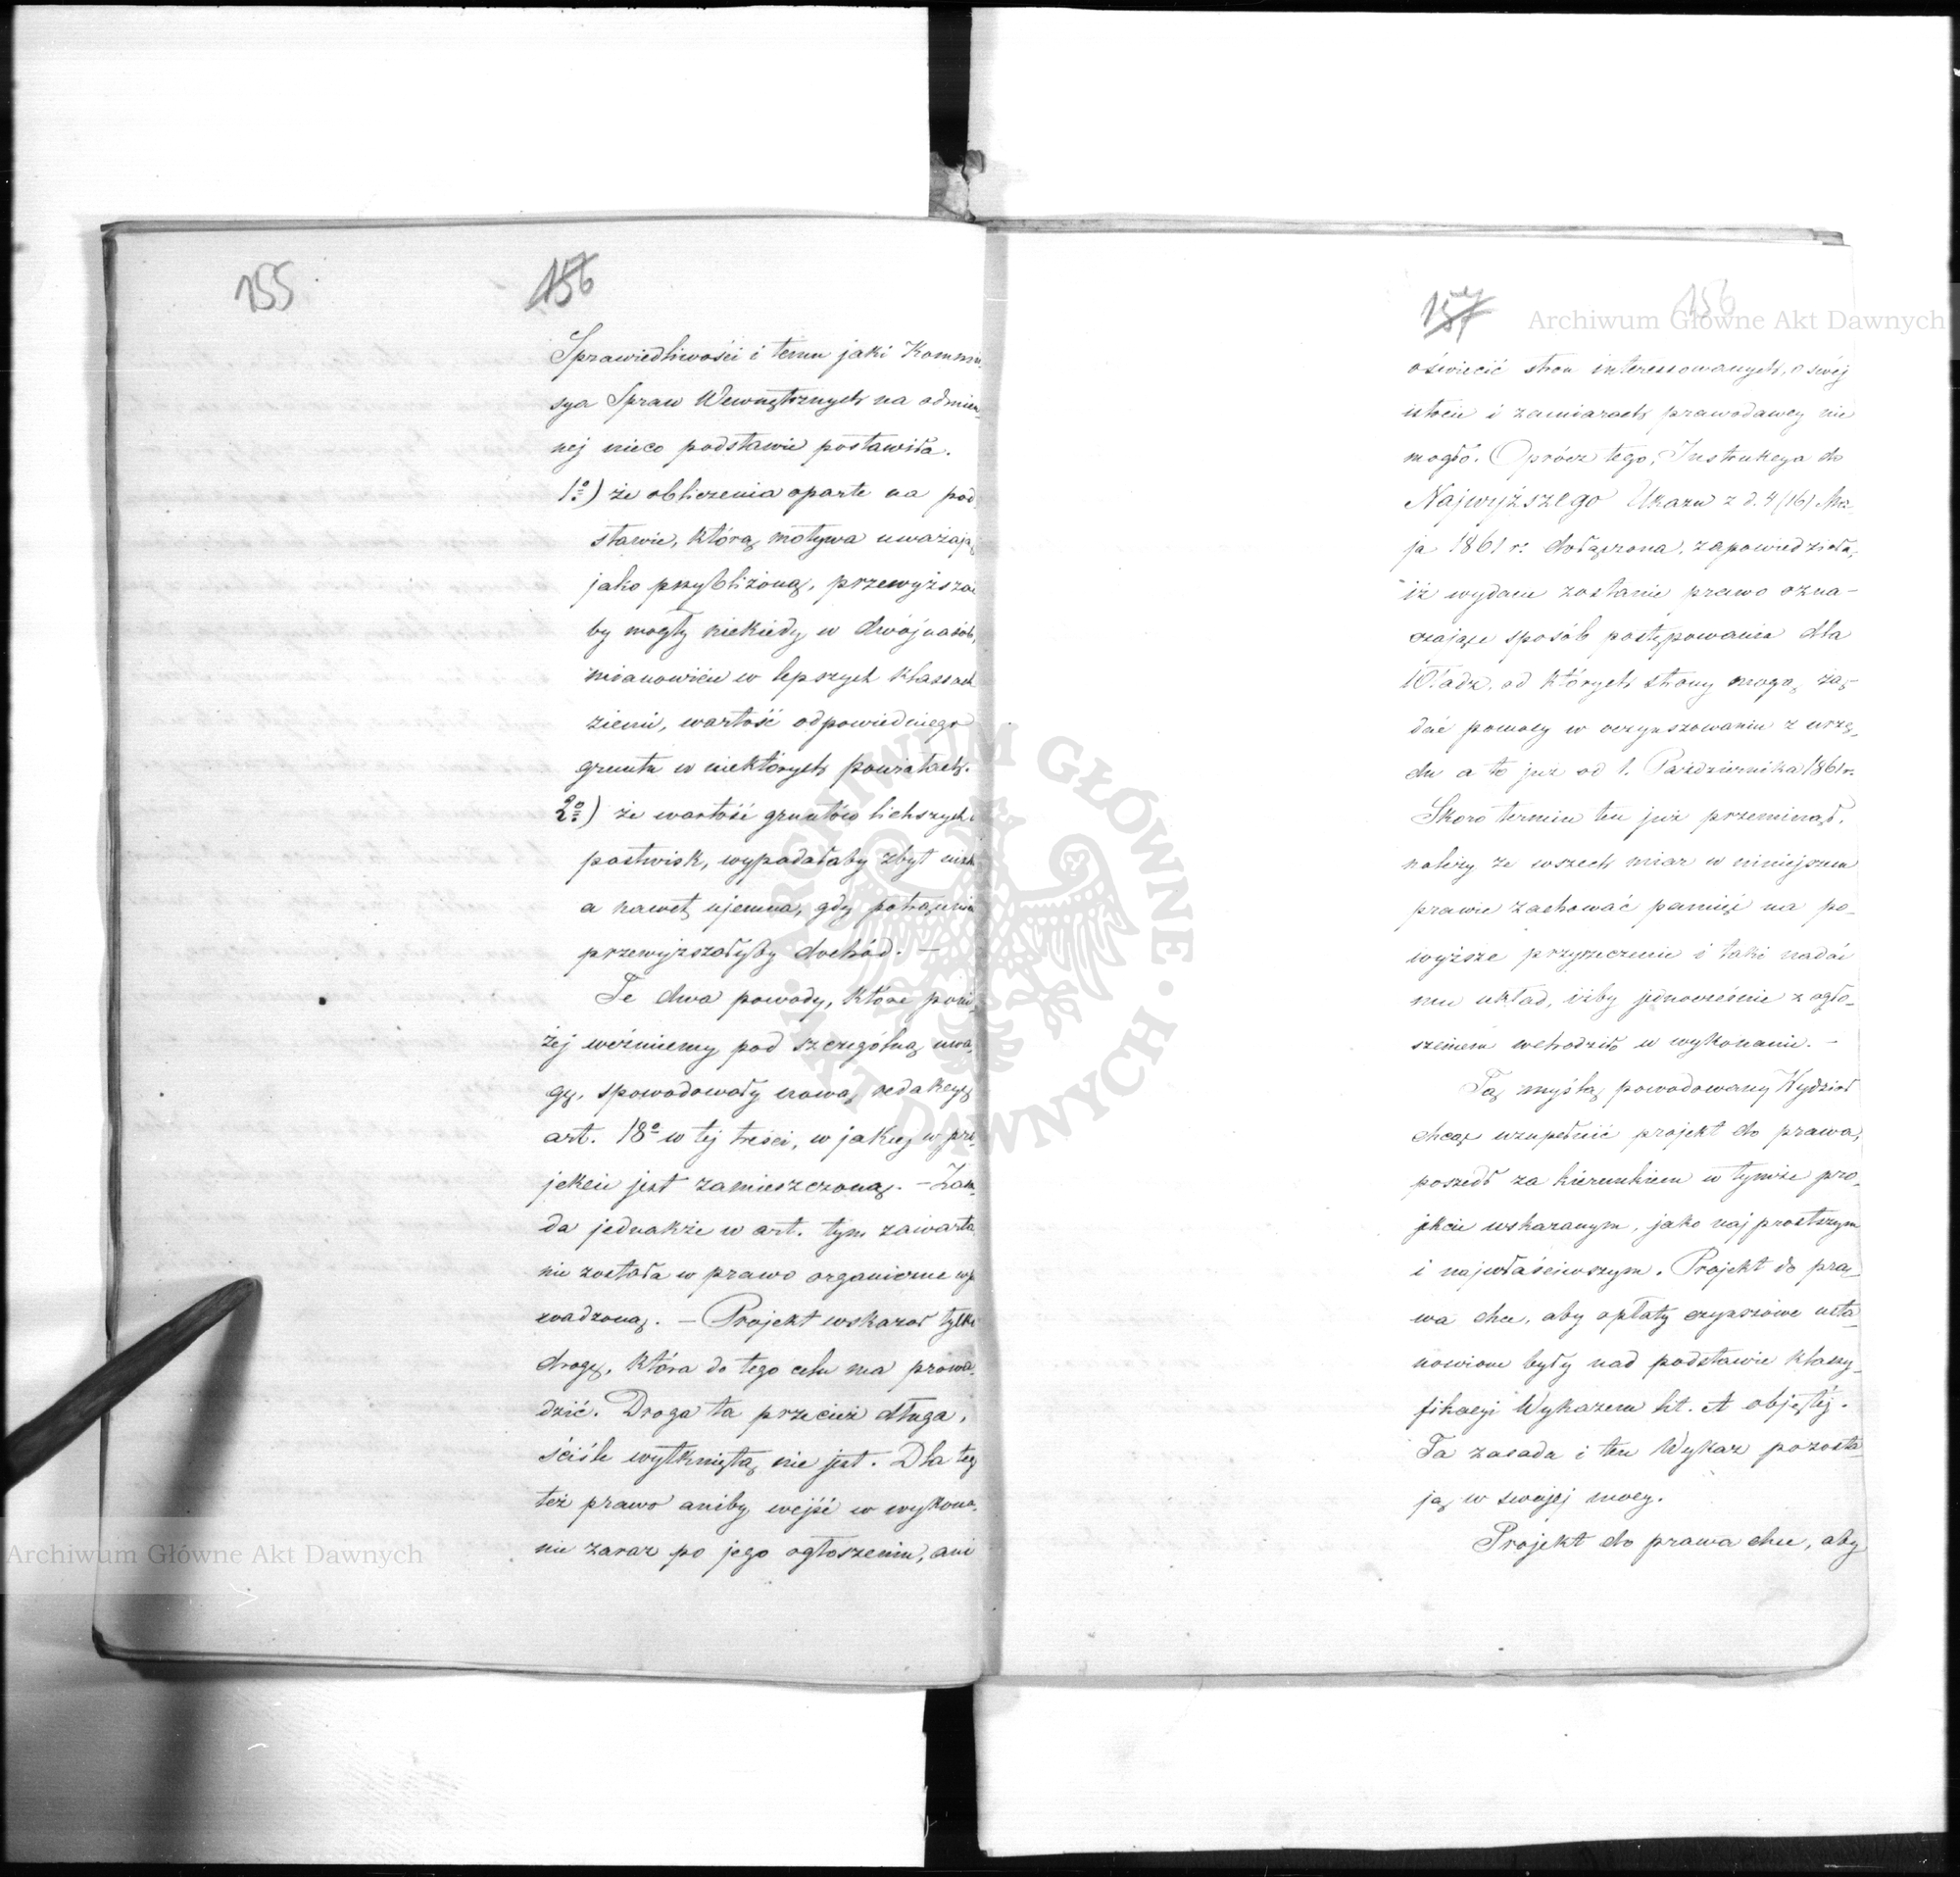 155
156
Sprawiedliwości i temu jaki Kommis
sya Spraw Wewnętrznych na odmien-
nej nieco podstawie postawiła.
1º) że obliczenia oparte na pod
stawie, którą motywa uważają
jako przybliżoną, przewyższać
by mogły niekiedy w dwójnasób,
mianowicie w lepszych klassach
ziemi, wartość odpowiedniego
gruntu w niektórych powiatach.
2º) że wartość gruntów lichszych i
pastwisk, wypadałaby zbyt niska
a nawet ujemna, gdy potrącenia
przewyższałyby dochód. —
Te dwa powody, które poni-
żej weźmiemy pod szczególną uwa-
gę, spowodowały nową redakcyę
art. 18º w tej treści, w jakiej w pro-
jekcie jest zamieszczoną. — Zasa-
da jednakże w art. tym zawarta
nie została w prawo organiczne wpro
wadzoną. — Projekt wskazał tylko
drogę, która do tego celu ma prowa-
dzić. Droga ta przecież długa,
ściśle wytkniętą nie jest. Dla tego
też prawo aniby wejść w wykona-
nie zaraz po jego ogłoszeniu, ani
157
156
oświecić stron interessowanych, o swej
istocie i zamiarach prawodawcy nie
mogło. Oprócz tego, Instrukcya do
Najwyższego Ukazu z d. 4 (16) Ma-
ja 1861 r. dołączona, zapowiedziała,
iż wydane zostanie prawo ozna-
czające sposób postępowania dla
Władz, od których strony mogą żą-
dać pomocy w oczynszowaniu z urzę-
du a to już od 1. Października 1861 r.
Skoro termin ten już przeminął,
należy ze wszech miar w niniejszem
prawie zachować pamięć na po-
wyższe przyrzeczenie i taki nadać
mu układ, iżby jednocześnie z ogło-
szeniem wchodziło w wykonanie. —
Tą myślą powodowany Wydział
chcąc uzupełnić projekt do prawa,
poszedł za kierunkiem w tymże pro-
jekcie wskazanym, jako najprostszym
i najwłaściwszym. Projekt do pra-
wa chce, aby opłaty czynszowe usta-
nowione były nad podstawie klassy-
fikacyi Wykazem lit. A objętéj.
Ta zasada i ten Wykaz pozosta-
ją w swojej mocy.
Projekt do prawa chce, aby
Archiwum Główne Akt Dawnych
Archiwum Główne Akt Dawnych
ARCHIWUM GŁÓWNE · AKT DAWNYCH ·